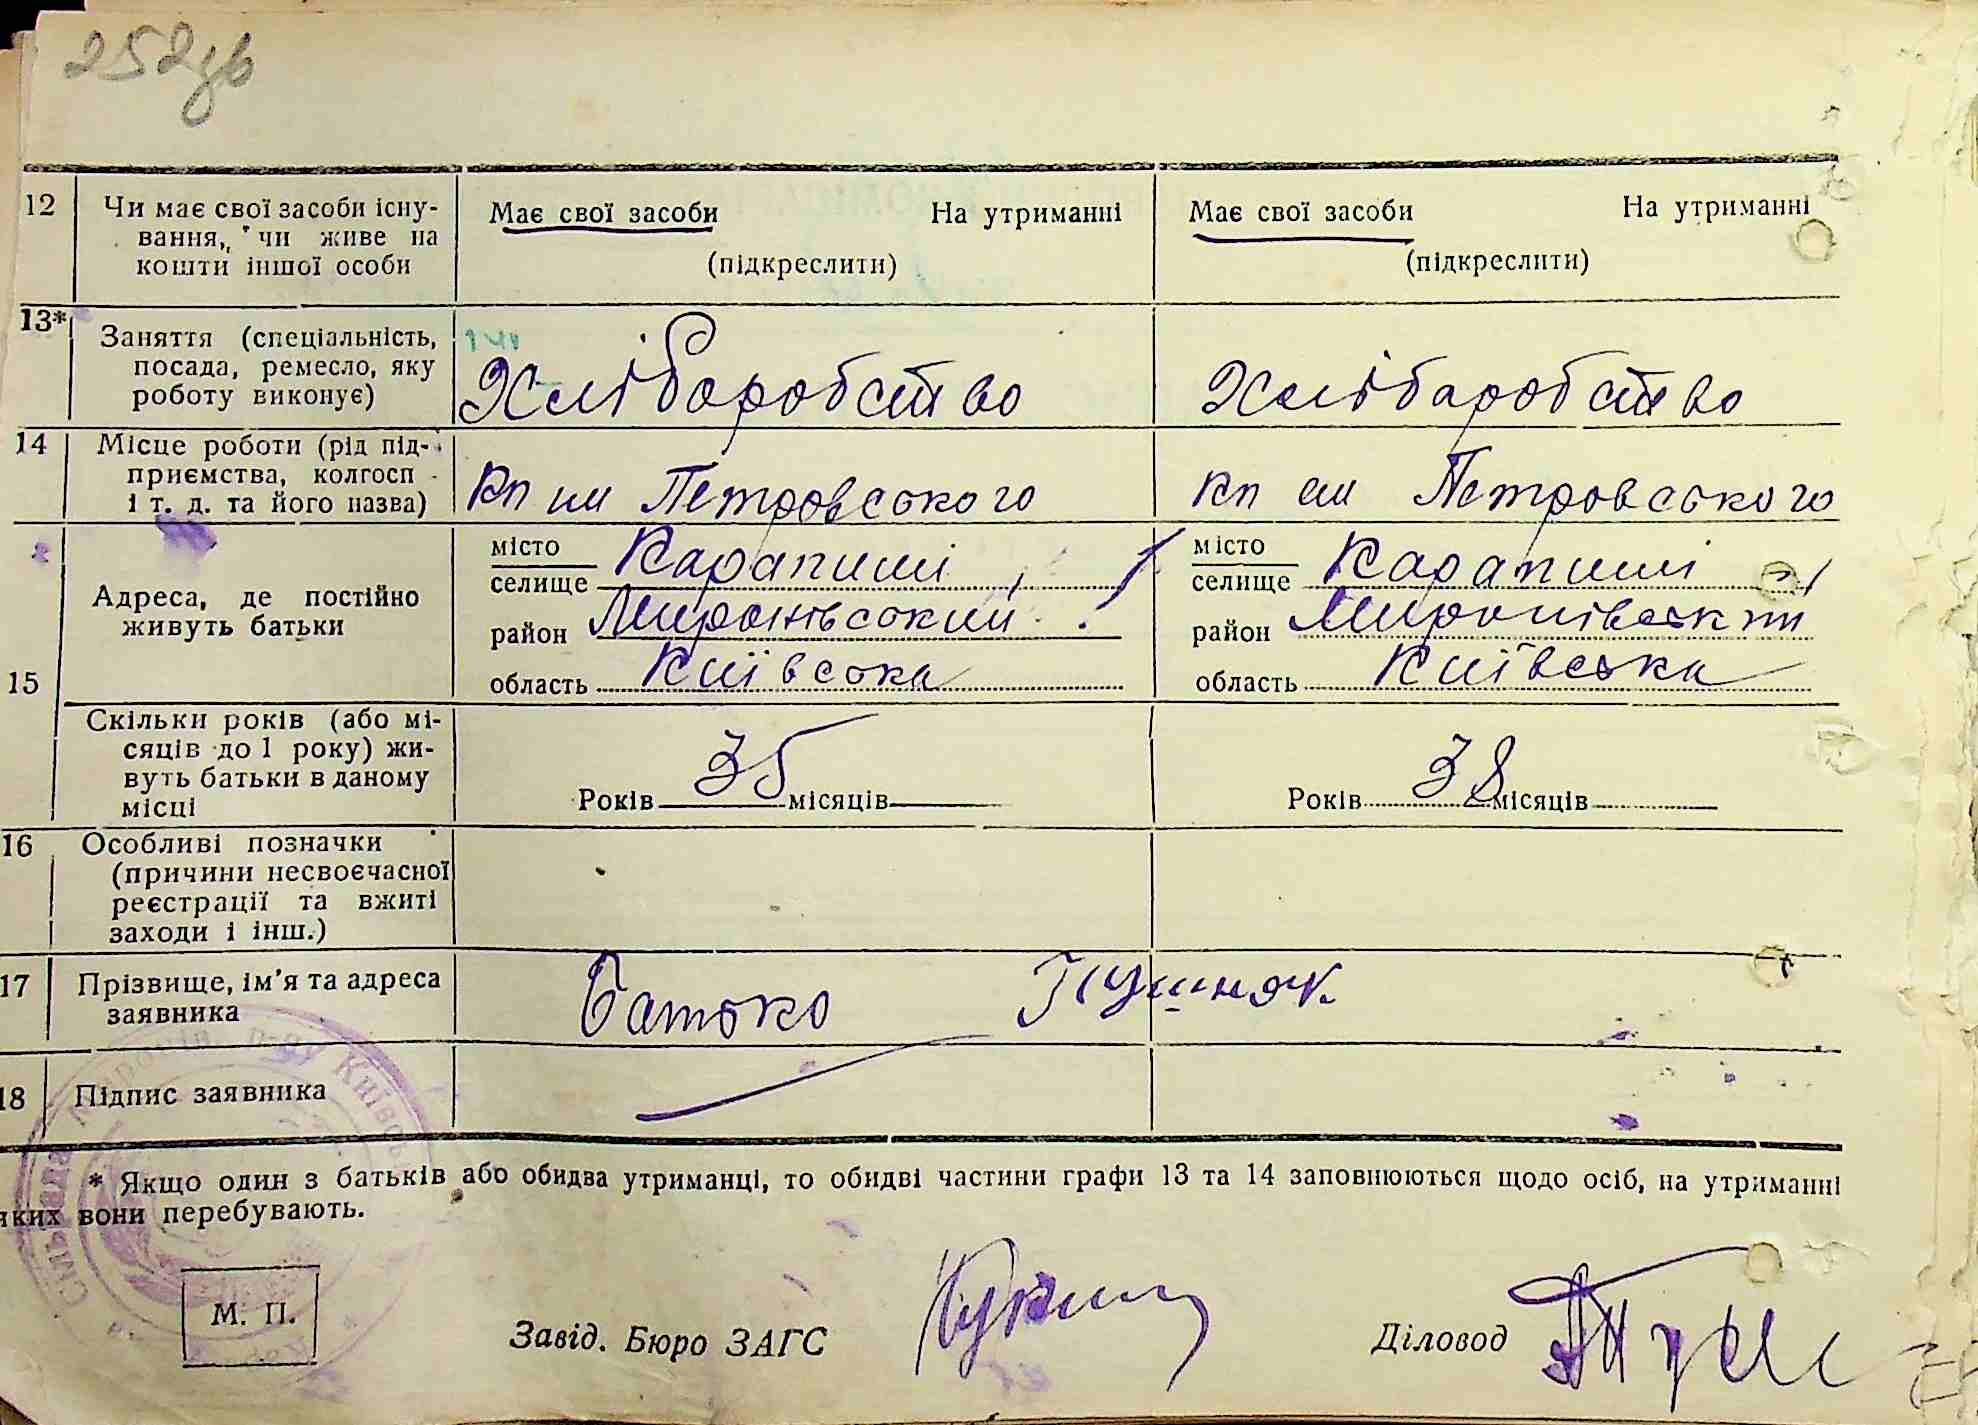 252зв
12 Чи має свої засоби існу- Має свої засоби На утриманні Має свої засоби На утриманні
вання, чи живе на
кошти іншої особи (підкреслити) (підкреслити)
13* Заняття (спеціальність,
посада, ремесло, яку
роботу виконує) Хліборобство Хліборобство
14 Місце роботи (рід під-
приємства, колгосп
і т. д. та його назва) Кп им Петровського Кп им Петровського
15 Адреса, де постійно
живуть батьки
місто
селище Карапиші
район Миронівський
область Київська
місто
селище Карапиші
район Миронівський
область Київська
Скільки років (або мі-
сяців до 1 року) жи-
вуть батьки в даному
місці Років 35 місяців Років 38 місяців
16 Особливі позначки
(причини несвоєчасної
реєстрації та вжиті
заходи і інш.)
17 Прізвище, ім'я та адреса
заявника Батько Пушняк
18 Підпис заявника
* Якщо один з батьків або обидва утриманці, то обидві частини графи 13 та 14 заповнюються щодо осіб, на утриманні
яких вони перебувають.
М. П.
Завід. Бюро ЗАГС
Діловод